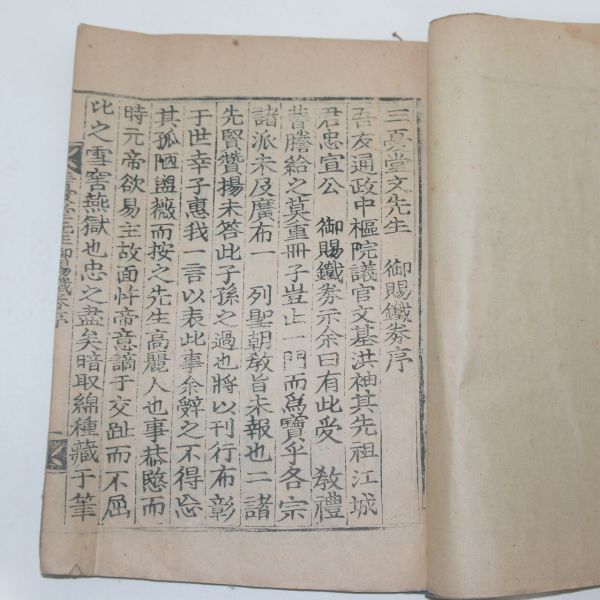 三憂堂文先生 御賜鐵券序
吾友通政中樞院議官文基洪袖其先祖江城
君忠宣公 御賜鐵券示余曰有此受 敎禮
曺謄給之莫重冊子豈止一門而爲寶乎各宗
諸派未及廣布一 列聖朝敎旨未報也二諸
先賢贊揚未答此子孫之過也將以刊行布彰
于世幸子惠我一言以表此事余辭之不得忘
其孤陋盥薇而按之先生高麗人也事恭愍而
時元帝欲易主故面忤帝意謫于交趾而不屈
比之雪窖燕獄也忠之盡矣暗取綿種藏于筆
三憂堂先生御賜鐵券序
一